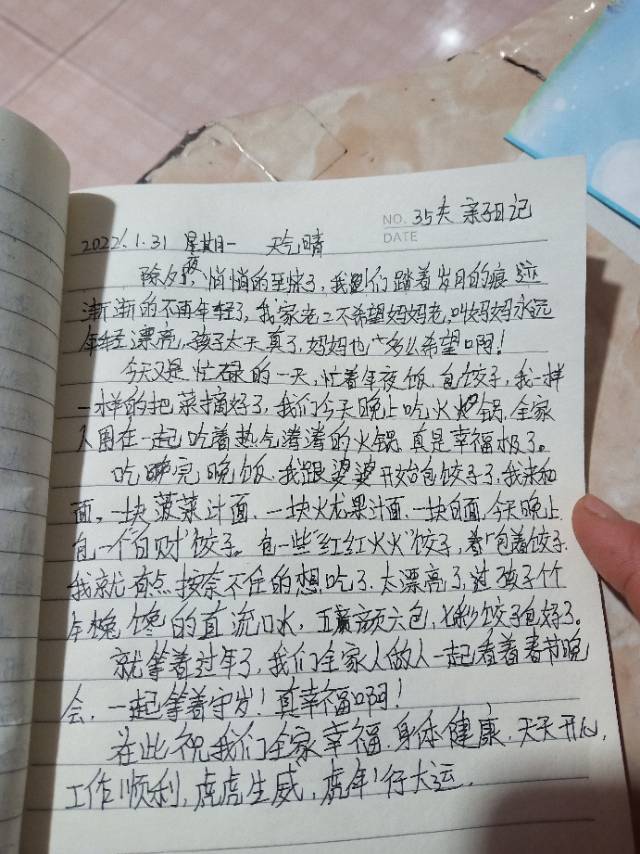 NO. 35天亲子日记
DATE
2022.1.31 星期一 天气晴
除夕夜悄悄的至来了,我们踏着岁月的痕迹
渐渐的不再年轻了,我家老二不希望妈妈老,叫妈妈永远
年轻漂亮,孩子太天真了,妈妈也多么希望啊!
今天又是忙碌的一天,忙着年夜饭.包饺子,我一样
一样的把菜摘好了,我们今天晚上吃火火锅.全家
人围在一起吃着热气腾腾的火锅.真是幸福极了。
吃完晚饭.我跟婆婆开始包饺子了,我来和
面,一块菠菜汁面.一块火龙果汁面.一块白面.今天晚上
包一个"白财"饺子.包一些"红红火火"饺子,看包着饺子.
我就有点按奈不住的想吃了.太漂亮了,孩子
馋的直流口水,五颜六包,饺子包好了。
就等着过年了,我们全家人的人一起看着春节晚
会,一起等着守岁!真幸福啊!
在此祝我们全家幸福.身体健康.天天开心,
工作顺利,虎虎生威,虎年行大运.